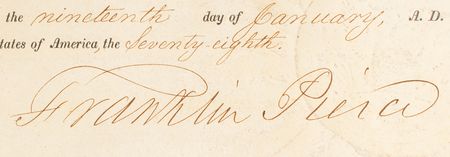 the nineteenth day of January, A. D.
tates of America, the Seventy-eighth.
Franklin Pierce